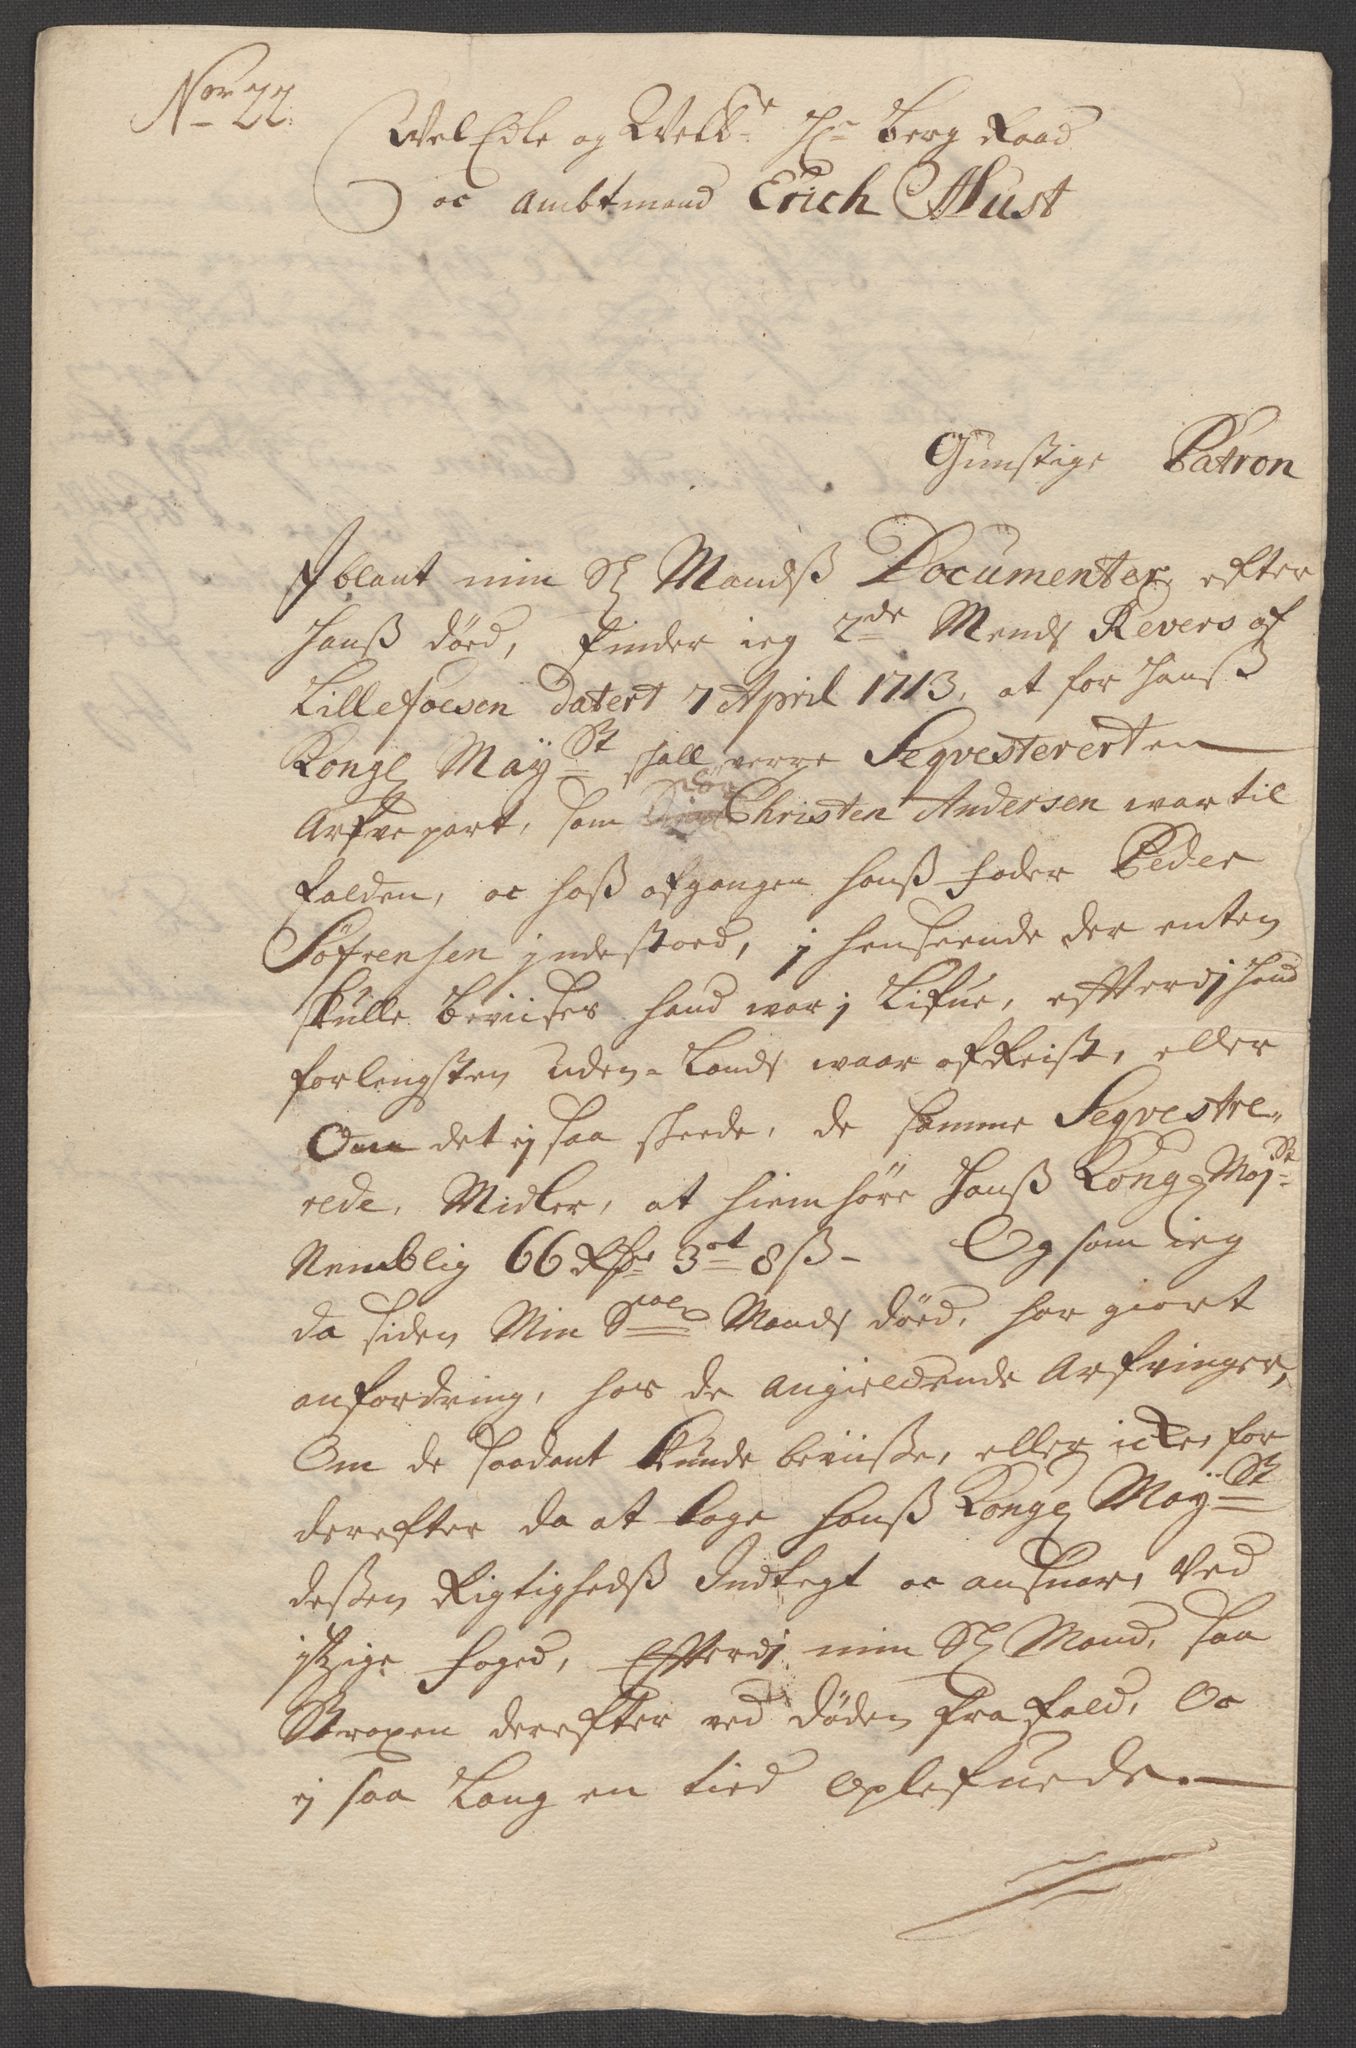 Nor 22.
WelEdle og Welb:e Hr Berg Raad
oc Ambtmand Erich Must
Gunstige Patron
Iblant min Sl Mandß Documenter, efter
hanß död, finder ieg 2de Mends Revers af
Lillefosen datert 7 April 1713, at for hanß
Kongl May:st skall verre Seqvesterert en
Arfvepart, som Christen Andersen war til
falden, oc hoß afgangen hanß Fader Peder
Söfrensen indestoed, j henseende der enten
skulle beviises hand war j Lifue, efterdj hand
forlengsten uden-Lands waar afReist, eller
Om det ej saa skeede, de samme Seqvestre,,
rede, Midler, at hiemhöre hanß Kongl May:st
Nemblig 66 Rdr 3ort 8ß- Og som ieg
da siden Min Sal Mands död, har giort
anfordring, hos de Angieldende Arfvinger,
Om de saadant kunde beviisse, eller icke, for
derefter da at tage hanß Kongl May:st
dessen Rigtighedß Indtegt oc ansvar, Ved
jtzige Foged, Efterdj min Sl Mand, saa
Straxen derefter ved döden frafald, Oc
ej saa Lang en tied Oplefuede.